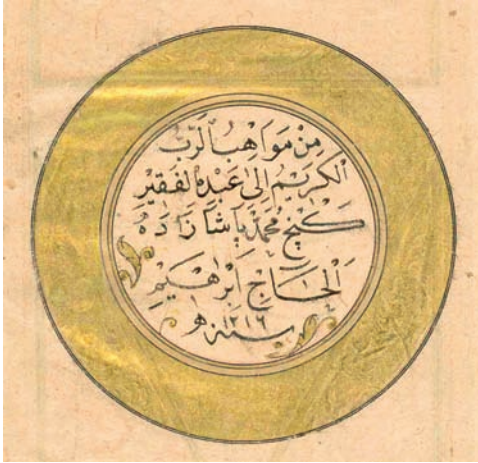 مِنْ مَوَاهِبِ الرَّبِّ
الْكَرِيْمِ اِلٰى عَبْدِهِ الْفَقِيْرِ
كَنْج مُحَمَّدْ پَاشَا زَادَهْ
اَلْحَاجّ اِبْرَاهِيْم
سنه ١٢١٦ هـ